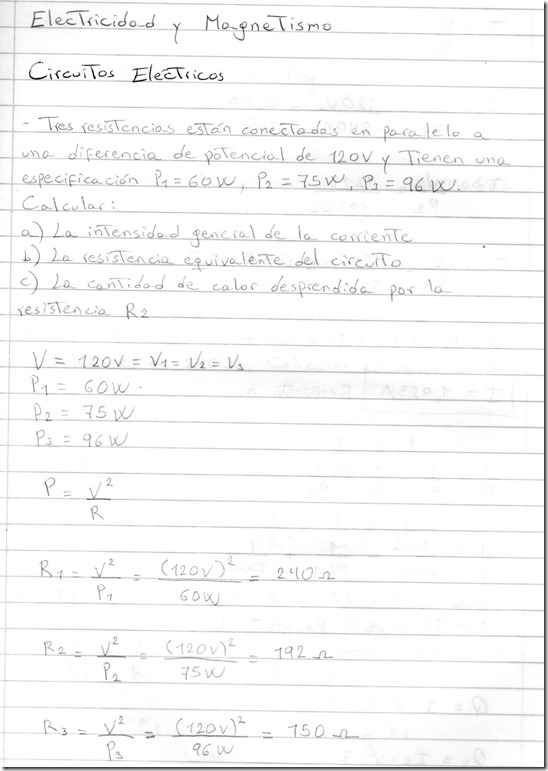 Electricidad y Magnetismo
Circuitos Electricos
- Tres resistencias están conectadas en paralelo a
una diferencia de potencial de 120V y Tienen una
especificación P₁ = 60W, P₂ = 75W, P₃ = 96W.
Calcular:
a) La intensidad general de la corriente
b) La resistencia equivalente del circuito
c) La cantidad de calor desprendida por la
resistencia R2
V = 120V = V1 = V2 = V3
P1 = 60W.
P2 = 75W
P3 = 96W
P = V²/R
R1 = V²/P1 = (120V)²/60W = 240Ω
R2 = V²/P2 = (120V)²/75W = 192Ω
R3 = V²/P3 = (120V)²/96W = 150Ω